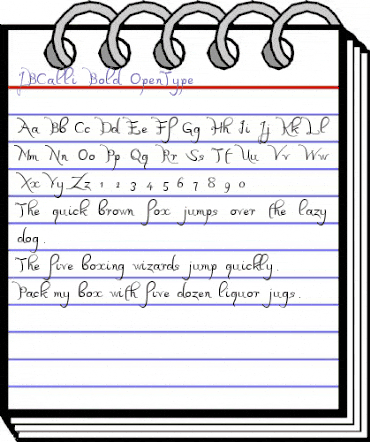 JBCalli Bold OpenType
Aa Bb Cc Dd Ee Ff Gg Hh Ii Jj Kk Ll
Mm Nn Oo Pp Qq Rr Ss Tt Uu Vv Ww
Xx Yy Zz 1 2 3 4 5 6 7 8 9 0
The quick brown fox jumps over the lazy
dog.
The five boxing wizards jump quickly.
Pack my box with five dozen liquor jugs.